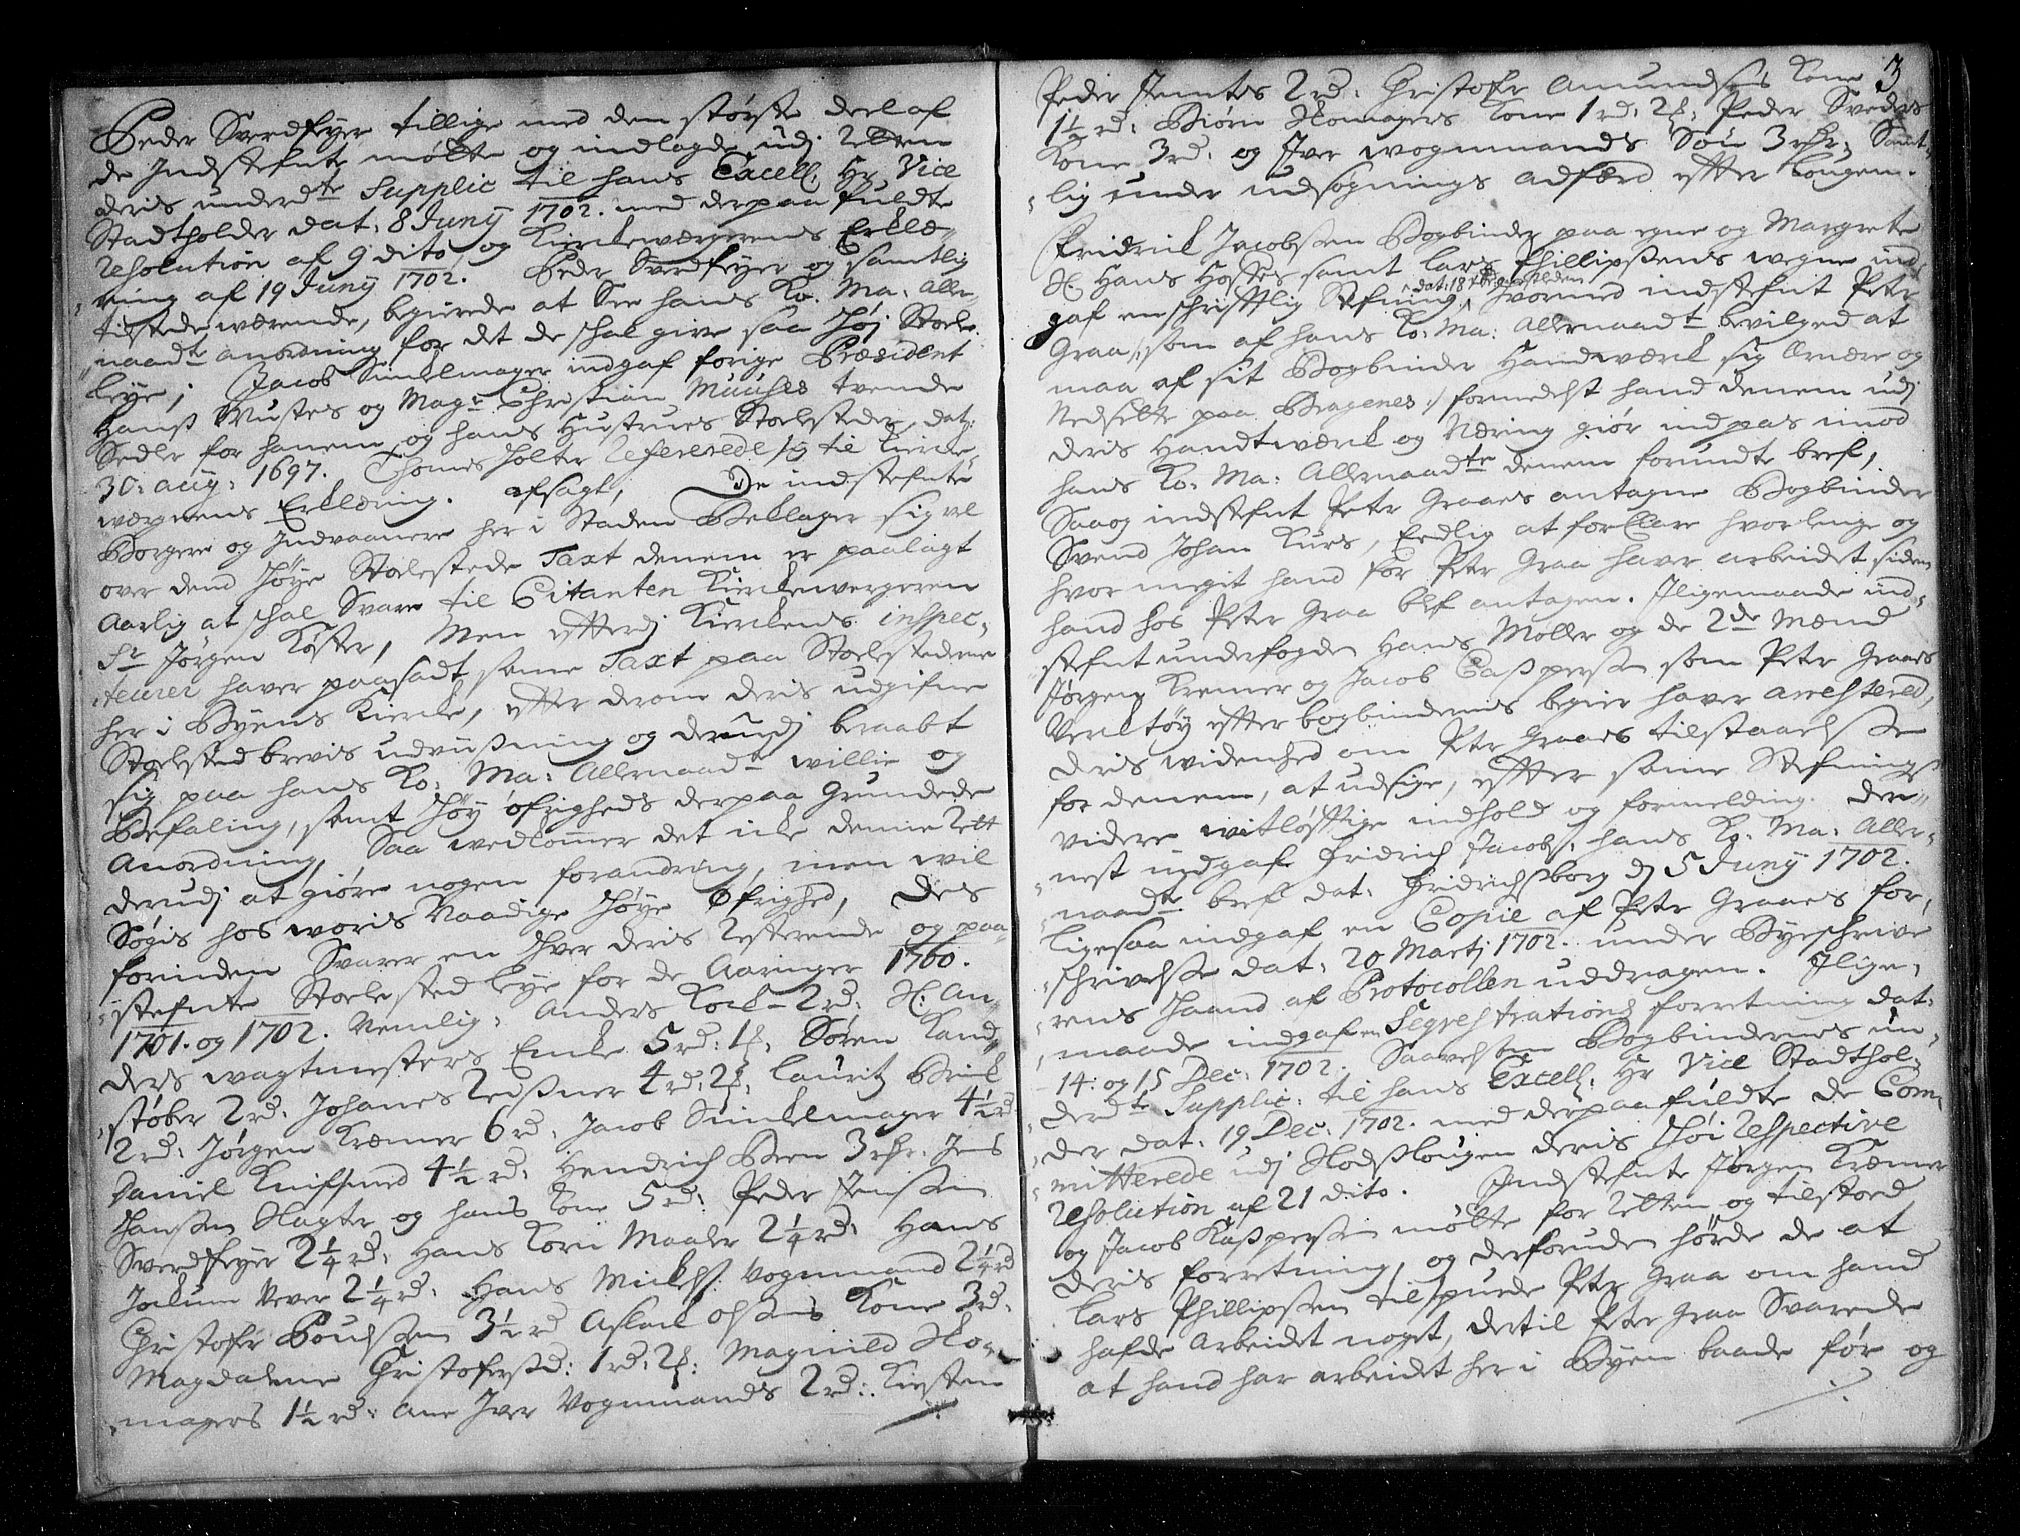 Peder Sverdfeyer tillige med den største deel af
de Indstefnte møtte og indlagde udj Retten
deris underdte Supplic til hans Excell. Hr Vice
Stadtholder dat: 8 Junij 1702. med derpaa fuldte
Resolution af 9 dito, og Kierckewærgerens Erklæ-
ring af 19 Junij 1702. Peder Sverdfeyer og samtlig
tilstedeværende, begierede at See hans Ko. Ma: Aller-
naadte anordning for det de schal give saa Høj Stoele
leye; Jacob Sinckelmager indgaf forige Præsident
Hanß Wustes og Magr Christian Muuhes tvende
Sedler for hanem og hans Hustrues Stoelesteder, dat:
30: aug: 1697. Thomes Holter Refererede sig til Kierke-
wærgerens Erklæring. Afsagt, De indstefnte
Borgere og Indvaanere her i Staden Beklager sig vel
over dend Høye Stoelestede Taxt denem er paalagt
Aarlig at schal Svare til Citanten Kierckewergeren
Sr Jørgen Køster, Men efterdj Kierckens inspec-
teurer haver paasadt samme Taxt paa Stoelestederne
her i Byens Kiercke, efter derom deris udgifne
Stoelestedbrevis udviißning og derudj beraabt
sig paa hans Ko: Ma: Allernaadte willie og
Befaling, samt Høy Øfrigheds derpaa Grundede
Anordning, Saa wedkommer det icke denne Rett
derudj at giøre nogen forandring, men wil
Søgis hos woris Naadige Høye Øfrighed, Des
forinden Svarer en Hver deris Resterende og paa-
stefnte Stoelested leye for de Aaringer 1700.
1701. og 1702. Nemlig: Anders Kock - 2 rd: Sl: An-
ders wagtmesters Encke 5 rd: 1 ß: Søren Kand-
støber 2 rd: Johanes Reßner 4 rd: 2 ß: Lauritz Brinck
2 rd: Jørgen Kræmer 6 rd: Jacob Sinckelmager 4½ rd
Daniel Knifsmed 4½ rd: Hendrich Been 3 rdr: Jens
Hansen Slagter og hans Kone 5 rd: Peder Jensen
Sverdfeyer 2¼ rd: Hans Korn Maaler 2¼ rd: Hans
Jockum Vever 2¼ rd: Hans Mickels: Vognmand 2¼ rd
Christofer Poulsen 3½ rd Aslack Olsens Kone 3 rd:
Magdalene Christofersd: 1 rd: 2 ß: Magnild Sko-
magers 1½ rd: Ane Iver Vognmands 2 rd: Kirsten
3
Peder Jemtes 2 rd: Christofr Amundsens Kone
1½ rd: Biørn Skomagers Kone 1 rd: 2 ß: Peder Svedes
Kone 3 rd: og Iver wognmands Søn 3 rdr: Samt-
lig under udsøgnings adfærd efter Lougen.
Fridrick Jacobsen Bogbinder paa egne og Margrete
Sl. Hans Hosses samt Lars Phillipsens wegne ind-
dat: 18
gaf en schriftlig Stefning, Hvormed indstefnt Petr
Graa /: som af hans Ko: Ma: Allernaadt bevilged at
maa af sit Bogbinder Handwerck sig Ernære og
Nedsette paa Bragenes :/ formedelst hand denem udj
deris Handtwerck og Næring giør indpas imod
hans Ko: Ma: Allernaadte denem forundte bref,
Saa og indstefnt Peter Graaes antagne Bogbinder
Svend Johan Kurs, Eedlig at forklare hvorlenge og
hvor meget hand for Petr Graa haver arbeidet siden
hand hos Petr Graa blef antagen. Iligemaade ind-
stefnt underfogden Hans Møller og de 2de Mænd
Jørgen Kremer og Jacob Caspersen som Petr Graaes
Vercktøy efter bogbindernes begier haver arrestered,
deris widenhed om Petr Graaes tilstaaelse
for denem, at udsige, efter samme Stefnings
videre witløfftige indhold og formelding. Der-
nest indgaf Fridrich Jacobs: hans Ko: Ma: Aller-
naadte bref dat: Fridrichsborg dj 5 Junij 1702.
ligesaa indgaf en Copie af Petr Graaes for-
schrivelse dat: 20 Martj 1702. under Byeschrive-
rens Haand af Protocollen uddragen. Ilige-
maade indgaf en Seqvestrations forretning dat:
14: og 15 Dec: 1702. Saavelsom Bogbindernes un-
derdte Supplic: til hans Excell: Hr Vice Stadthol-
der dat: 19 Dec: 1702. med derpaa fuldte De Com-
mitterede udj Slodßlougen deris Høi Respective
Resolution af 21 dito. Indstefnte Jørgen Kræmer
og Jacob Kaspersen møtte for Retten og tilstoed
deris forretning, og derforuden hørde de at
Lars Phillipsen tilspurde Petr Graa om hand
hafde Arbeidet noget, dertil Petr Graa Svarede
at hand har arbeidet her i Byen baade før og